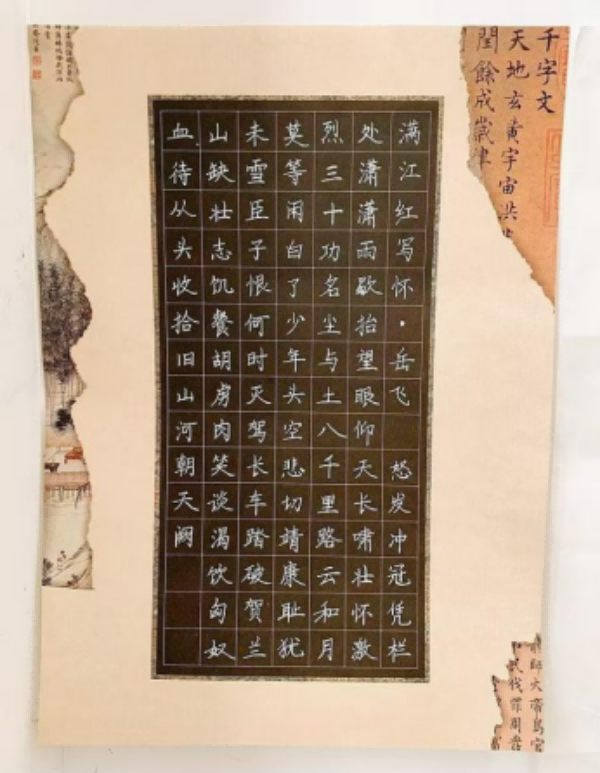 千字文
天地玄黃宇宙洪
閏餘成歲律
满江红写怀·岳飞 怒发冲冠凭栏
处潇潇雨歇抬望眼仰天长啸壮怀激
烈三十功名尘与土八千里路云和月
莫等闲白了少年头空悲切靖康耻犹
未雪臣子恨何时灭驾长车踏破贺兰
山缺壮志饥餐胡虏肉笑谈渴饮匈奴
血待从头收拾旧山河朝天阙
師火帝鳥官
民伐罪周